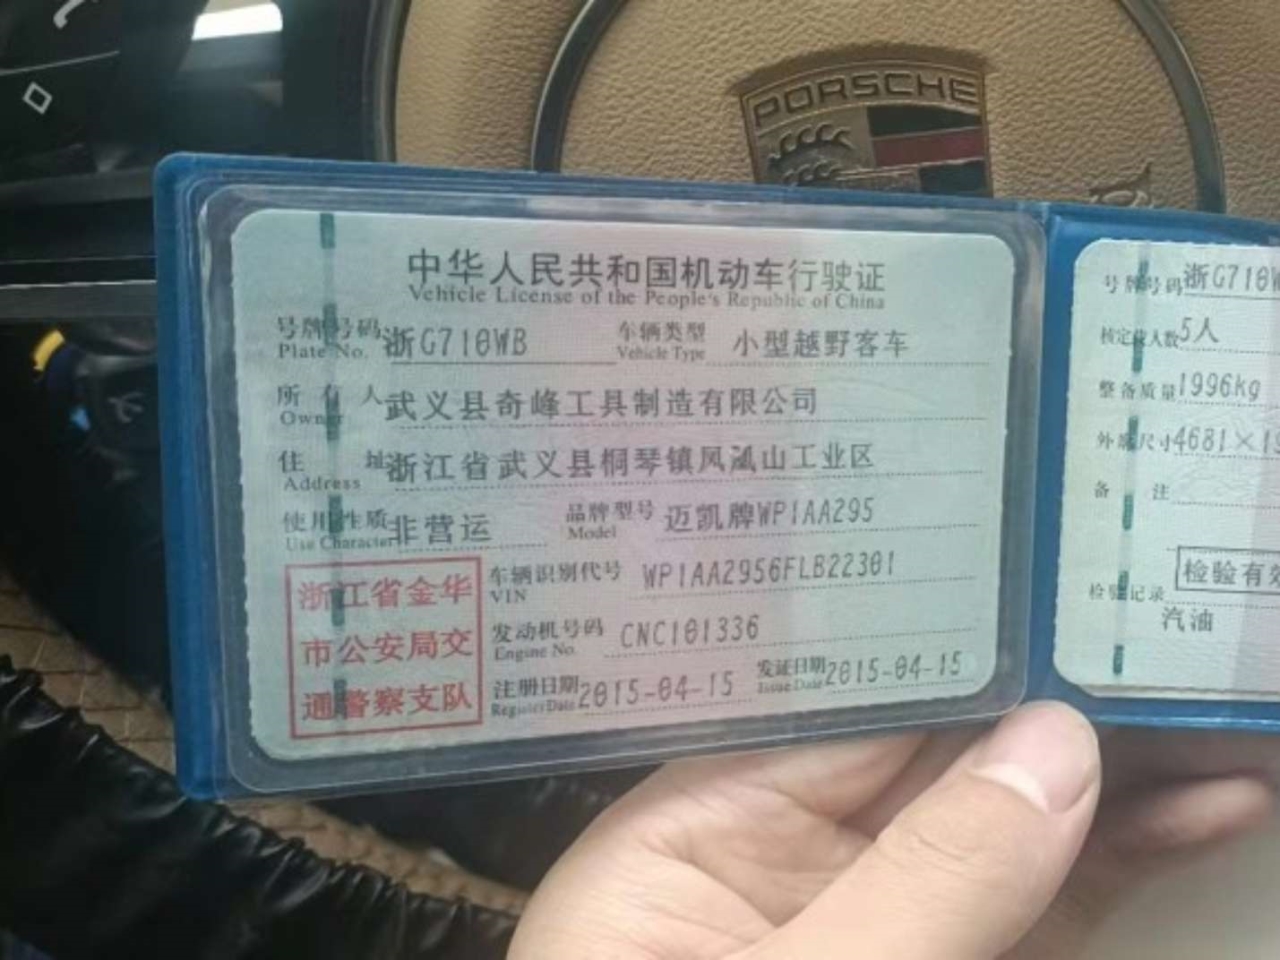 PORSCHE
中华人民共和国机动车行驶证
Vehicle License of the People's Republic of China
号牌号码 浙G710WB 车辆类型 小型越野客车
Plate No. Vehicle Type
所有人 武义县奇峰工具制造有限公司
Owner
住址 浙江省武义县桐琴镇凤凰山工业区
Address
使用性质 非营运 品牌型号 迈凯牌WP1AA295
Use Character Model
车辆识别代号 WP1AA2956FLB22301
VIN
发动机号码 CNC101336
Engine No.
注册日期 2015-04-15 发证日期 2015-04-15
Register Date Issue Date
浙江省金华
市公安局交
通警察支队
号牌号码 浙G710W
核定载人数 5人
整备质量 1996kg
外廓尺寸 4681×19
备注
检验有效
检验记录
汽油